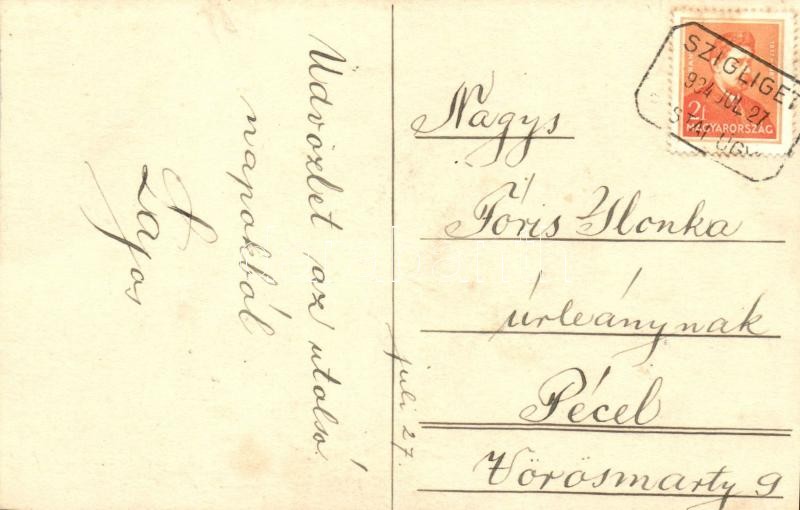 Üdvözlet az utolsó
napokból
Lajos
juli 27.
SZIGLIGET
934 JUL. 27.
2f
MAGYARORSZÁG
Nagys
Fóris Ilonka
úrleánynak
Pécel
Vörösmarty 9